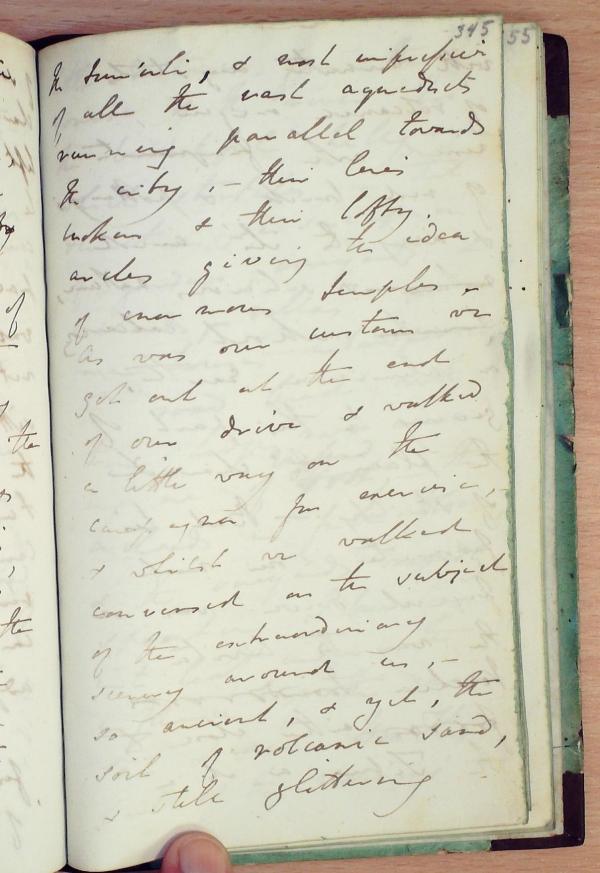 345
55
the tumuli, & most impressive
of all the vast aqueducts
running parallel towards
the city, – their lines
broken & their lofty
arches giving the idea
of enormous temples –
As was our custom we
got out at the end
of our drive & walked
a little way on the
campagna for exercise, –
& whilst we walked
conversed on the subject
of the extraordinary
scenery around us, –
so ancient, & yet, the
soil of volcanic sand,
& still glittering
of
the
the